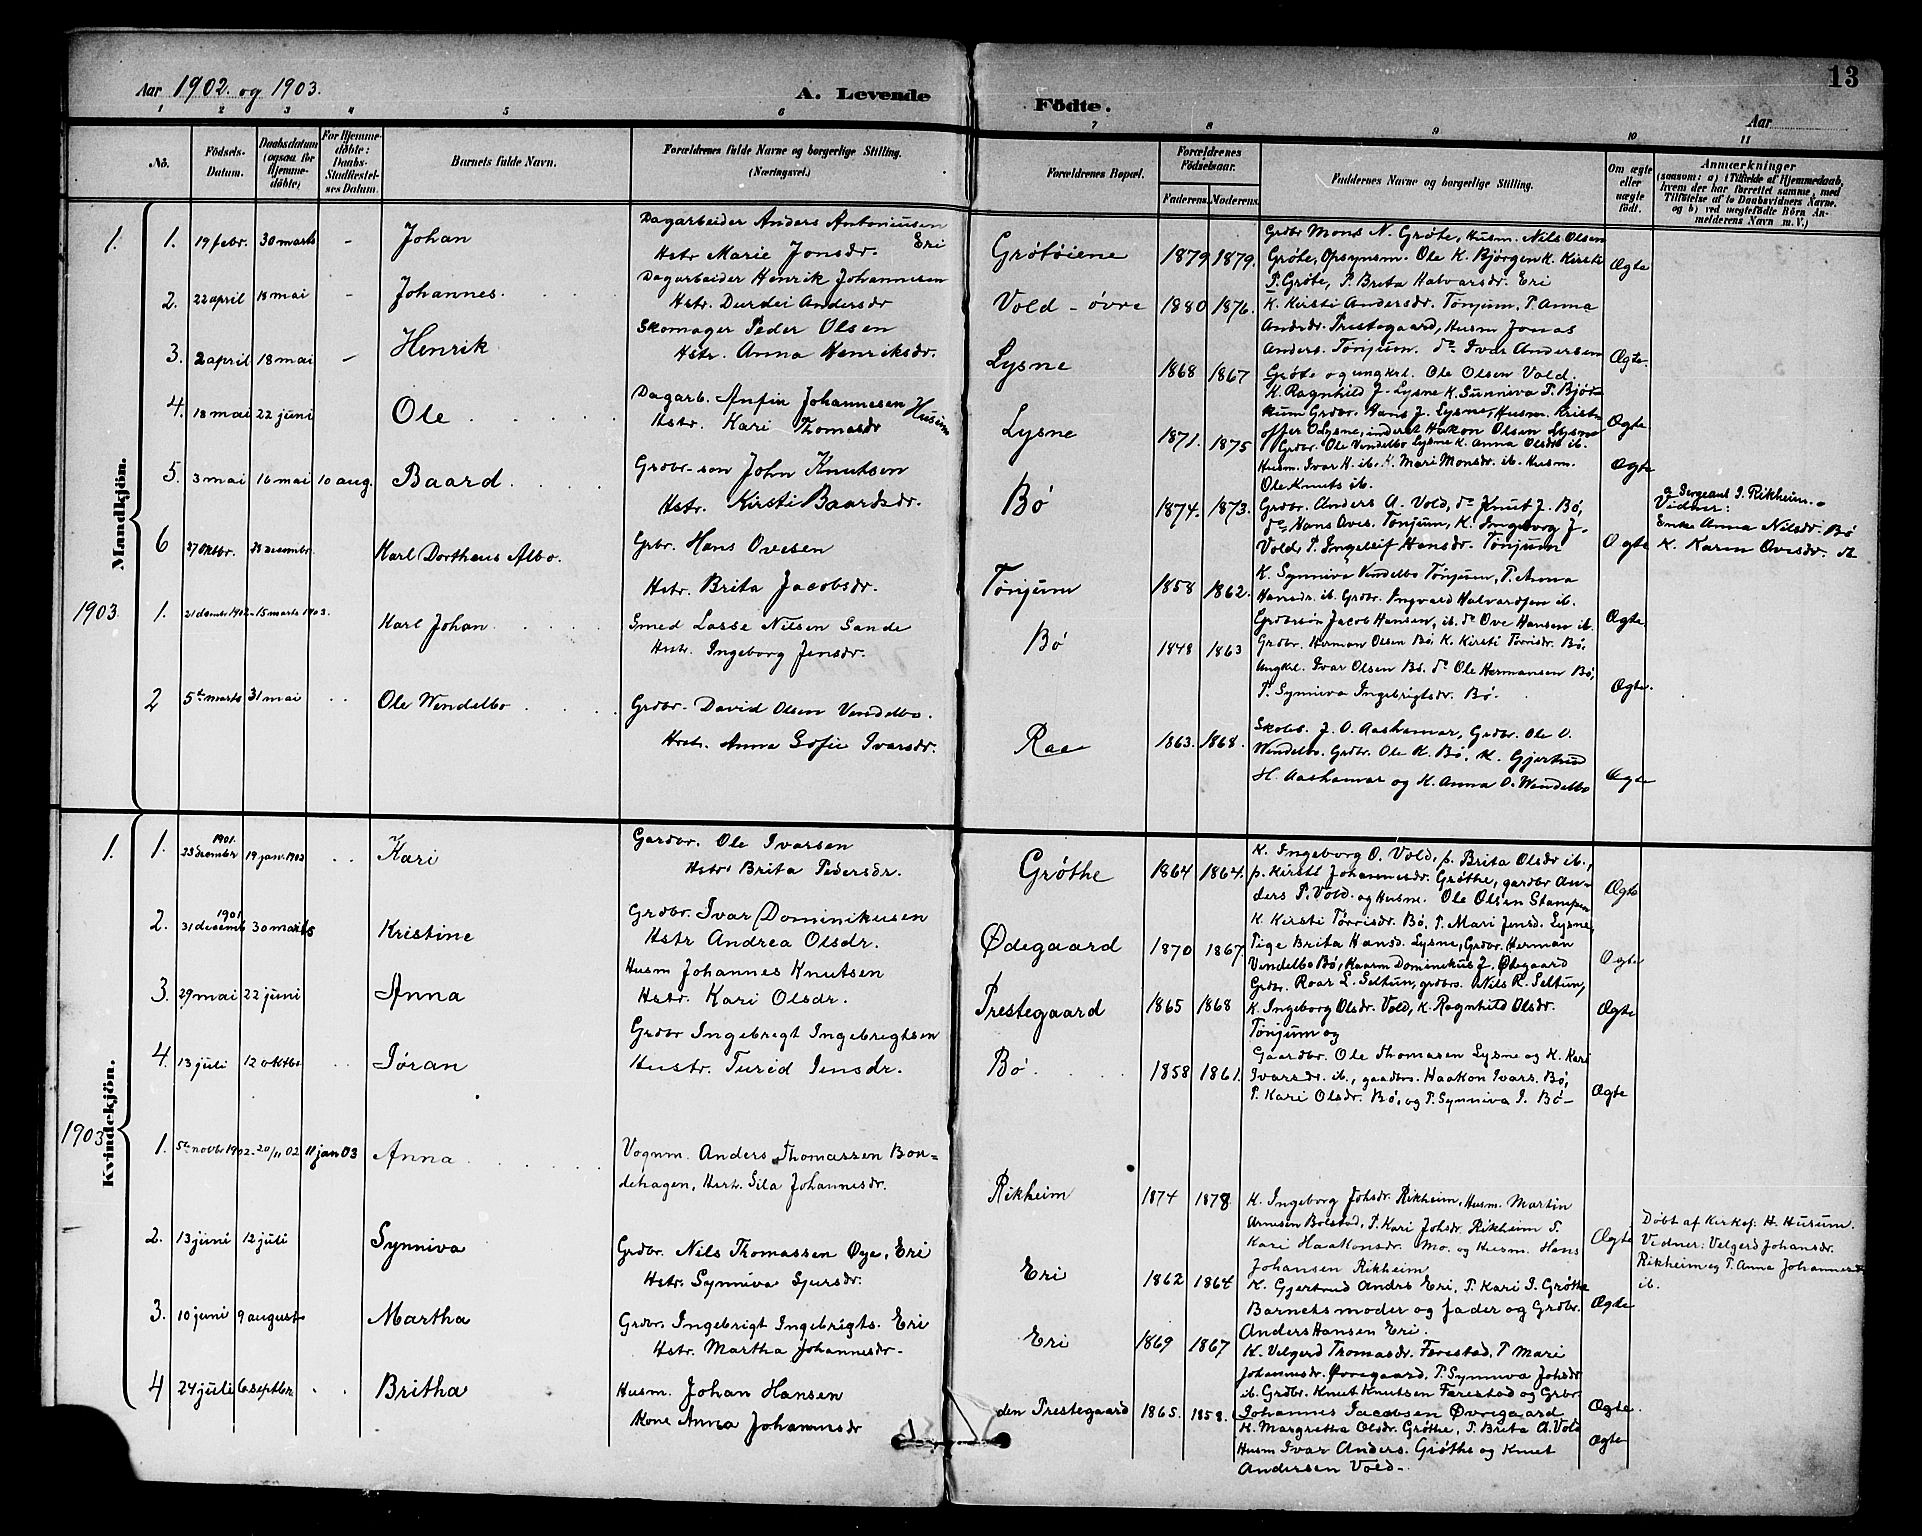 Aar 1902 og 1903.
A. Levende
Födte.
13
Aar
1 2 3 4 5 6 7 8 9 10 11
No.
Födsels-Datum.
Daabsdatum (ogsaa for Hjemmedöbte)
For Hjemmedöbte: Daabs-Stadfæstelses Datum.
Barnets fulde Navn.
Forældrenes fulde Navne og borgerlige Stilling. (Næringsvei.)
Forældrenes Bopæl.
Forældrenes Födselsaar.
Faderens. Moderens.
Faddernes Navne og borgerlige Stilling.
Om ægte eller uægte födt.
Anmærkninger
(saasom: a) i Tilfælde af Hjemmedaab, hvem der har forrettet samme, med Tilföielse af to Daabsvidners Navne, og b) ved uægtefödte Börn Anmelderens Navn m. V.)
Mandkjön.
1. 1. 19 febr. 30 marts - Johan
Dagarbeider Anders Antoniusen Eri
Hstr Marie Jonsdr.
Grötöiene 1879 1879.
Grdbr Mons N. Gröte, Husm. Nils Olsen
Gröte, Opsynsm. Ole K. Björgen K. Kirsti
P. Gröte, P. Brita Halvarsdr. Eri
Ægte
2. 22 april 18 mai - Johannes.
Dagarbeider Henrik Johannesen
Hstr. Durdei Andersdr
Vold - övre 1880 1876.
K. Kirsti Andersdr. Tönjum, P. Anna
Andrdr. Prestegaard, Husm Jonas
Anders. Tönjum. do Ivar Andersen
Gröte og ungkrl. Ole Olsen Vold.
Ægte.
3. 2 april 18 mai - Henrik
Skomager Peder Olsen
Hstr. Anna Henriksdr.
Lysne 1868 1867
K. Ragnhild J. Lysne K. Sunniva P. Bjöt
kum Grdbr. Hans J. Lysne, Husm. Krist
offer O Lysne, inderst Hakon Olsen Lysne
Ægte
4. 18 mai 22 juni Ole
Dagarb. Anfin Johannesen Husum
Hstr. Kari Thomasdr
Lysne 1871. 1875
Grdbr. Ole Vendelbo Lysne K. Anna Olsdr ib.
Husm. Ivar H. ib. K. Mari Monsdr. ib. Husm.
Ole Knuts ib.
Ægte
5. 3 mai 16 mai 10 aug. Baard
Grdbr-son John Knutsen
Hstr. Kirsti Baardsdr.
Bö 1874. 1873.
Grdbr. Anders A. Vold, do Knut J. Bö,
do Hans Oves. Tönjum, K. Ingeborg J.
Vold, P. Ingeleif Hansdr. Tönjum
Ogte
a Sergeant J. Rikheim.
Vidner:
Enke Anna Nilsdr. Bö
K. Karen Ovesdr. st
6 27 oktbr. 28 decembr. Karl Dortheus Albo.
Grbr. Hans Ovesen
Hstr. Brita Jacobsdr.
Tönjum 1858 1862.
K. Synniva Vendelbo Tönjum, P. Anna
Hansdr. ib. Grdbr. Ingvard Halvardsen ib.
Grdbrsön Jacob Hansen, ib. do Ove Hansen ib.
Ægte.
1903 1. 21 decmbr 1902. 15 marts 1903. Karl Johan
Smed Lasse Nilsen Sande
Hstr. Ingeborg Jensdr.
Bö 1848 1863
Grdbr. Herman Olsen Bö. K. Kirsti Torrisdr. Bö,
Ungkrl. Ivar Olsen Bö. do Ole Hermansen Bö,
P. Synniva Ingebrigtsdr. Bö.
Ægte.
2 5te marts 31 mai Ole Wendelbo
Grdbr. David Olsen Vendelbo.
Hstr. Anna Sofie Ivarsdr.
Raa 1863. 1868.
Skoleb. J. O. Aashamar, Grdbr. Ole O.
Wendelbo. Grdbr. Ole K. Bö, K. Gjertrud
H. Aashamar og K. Anna O. Wendelbo
Ægte
Kvindekjön.
1. 1. 1901. 23 dcembr 19 jan. 1902 Kari
Gardbr. Ole Ivarsen
Hstr. Brita Pedersdr.
Gröthe 1864 1864.
K. Ingeborg O. Vold, p. Brita Olsdr ib.,
p. Kirsti Johannesdr. Gröthe, gardbr An-
ders P. Vold. og Husm. Ole Olsen Stampen
Ægte
2. 1901 31 decemb 30 marts Kristine
Grdbr. Ivar Dominikusen
Hstr Andrea Olsdr.
Ødegaard 1870 1867.
K. Kirsti Torrisdr. Bö, P. Mari Jensd. Lysne,
Pige Brita Hansd. Lysne, Grdbr. Herman
Vendelbo Bö, Kaarm Dominekus J. Ødegaard
Ogte
3. 29 mai 22 juni Anna
Husm Johannes Knutsen
Hstr. Kari Olsdr.
Prestegaard 1865 1868
Grdbr. Roar L. Seltun, grdbrs. Nils R. Seltun,
K. Ingeborg Olsdr. Vold, K. Ragnhild Olsdr.
Tönjum og
Ægte
4. 13 juli 12 oktbr Jöran
Grdbr Ingebrigt Ingebrigtsen
Hustr. Turid Jensdr.
Bö 1858 1861.
Gaardbr. Ole Thomasen Lysne og K. Kari
Ivarsdr. ib., gaadbrs. Haakon Ivars. Bö,
P. Kari Olsdr. Bö, og P. Synniva I. Bö-
Ægte
1903 1. 5te novbr 1902. 20/11 02 11 jan 03 Anna
Vognm. Anders Thomassen Bon=
dehagen, Hstr. Sila Johannesdr.
Rikheim 1874 1878
K. Ingeborg Johsdr. Rikheim, Husm. Martin
Arnesen Bolstad, P. Kari Johsdr Rikheim P.
Kari Haakonsdr. Mo. og Husm. Hans
Johansen Rikheim
Ægte
Döbt af Kirkes. H. Husum.
Vidner: Velgerd Johansdr.
Rikheim og P. Anna Johannesdr
ib.
2. 13 juni 12 juli Synniva
Grdbr. Nils Thomassen Øye, Eri
Hstr. Synniva Sjursdr.
Eri 1862 1864
K. Gjertrud Andrs Eri, P. Kari I. Gröthe
Barnets moder og fader og Grdbr.
Anders Hansen Eri.
Ægte
3. 10 juni 9 august Martha
Grdbr. Ingebrigt Ingebrigts. Eri
Hstr. Martha Johannesdr-
Eri 1869 1867
K. Velgerd Thomasdr. Farestad, P Mari
Johannsdr. Øvregaard, P. Synniva Johsdr
ib. Grdbr. Knut Knutsen Farestad og Grbr.
Johannes Jacobsen Øvregaard
Ægte.
4 24 juli 6 septbr Britha
Husm. Johan Hansen
Kone Anna Johannesdr
den Prestegaard 1865. 1858.
K. Margretha Olsdr. Gröthe, P. Brita A. Vold
Husm Ivar Anders. Gröthe og Knut
Andersen Vold-
Ægte